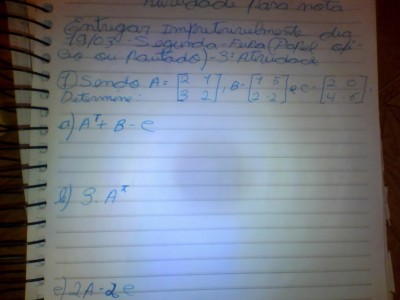 para nota
Entregar Impreterivelmente dia
19/03 - Segunda-Feira (Papel ofí-
cio ou Pautado) - 3ª Atividade
1) Sendo A= [2 1
3 2], B= [7 5
2 2] e C= [2 0
4 -6].
Determine:
a) Aᵗ + B - C
b) 3. Aᵗ
c) 2A - 2C